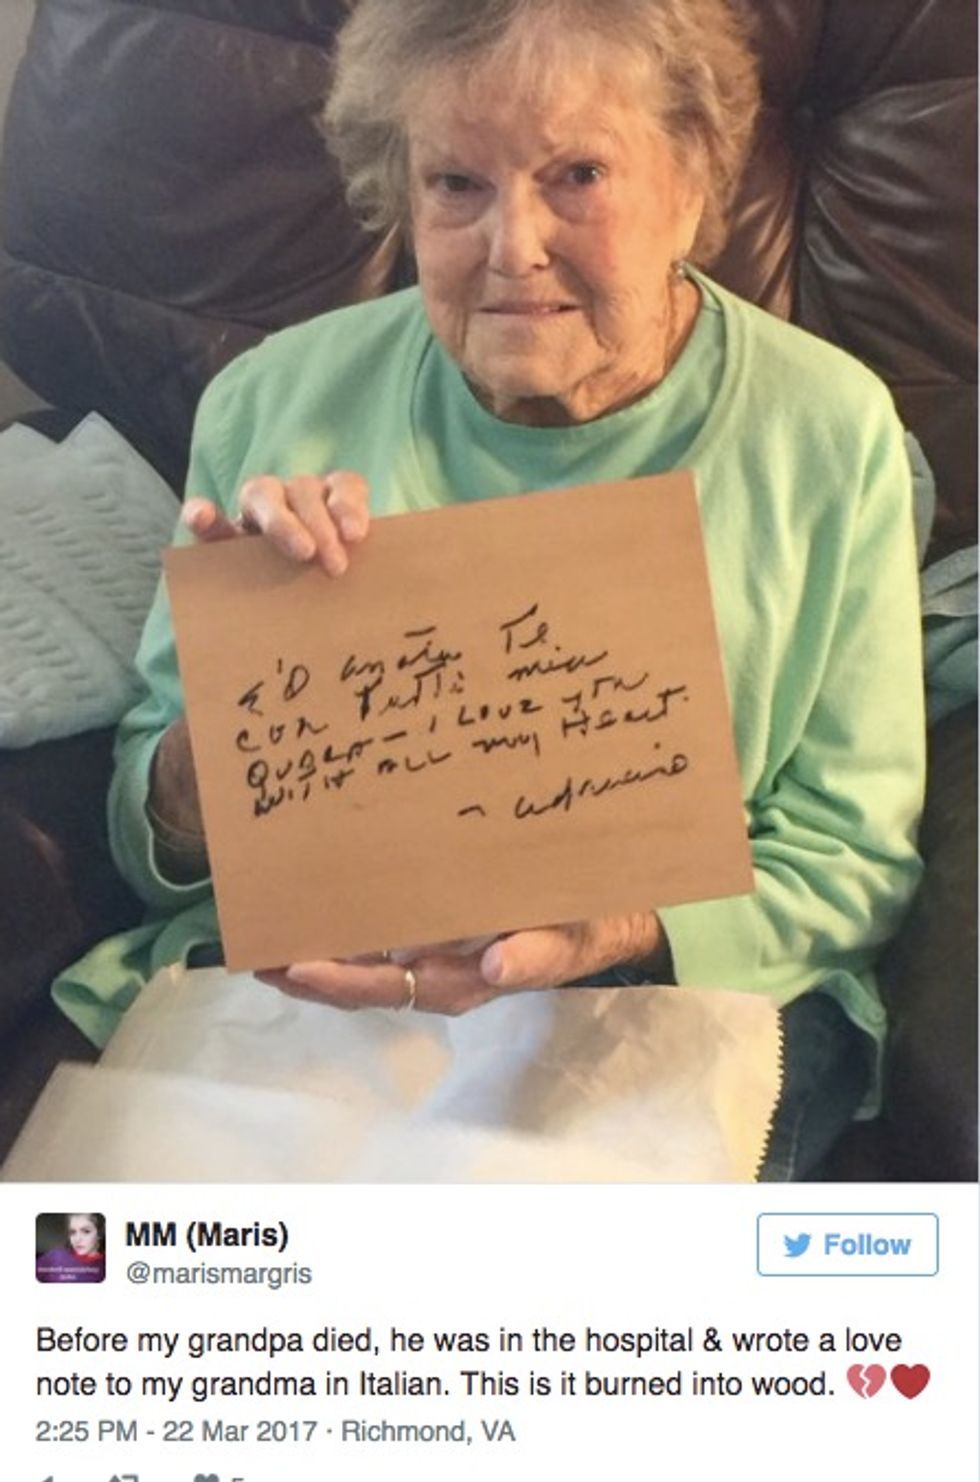 Te
con Tutti mia
- I LOVE YOU
WITH ALL my Heart.
MM (Maris)
@marismargris
Follow
Before my grandpa died, he was in the hospital & wrote a love
note to my grandma in Italian. This is it burned into wood. 💔❤️
2:25 PM - 22 Mar 2017 · Richmond, VA